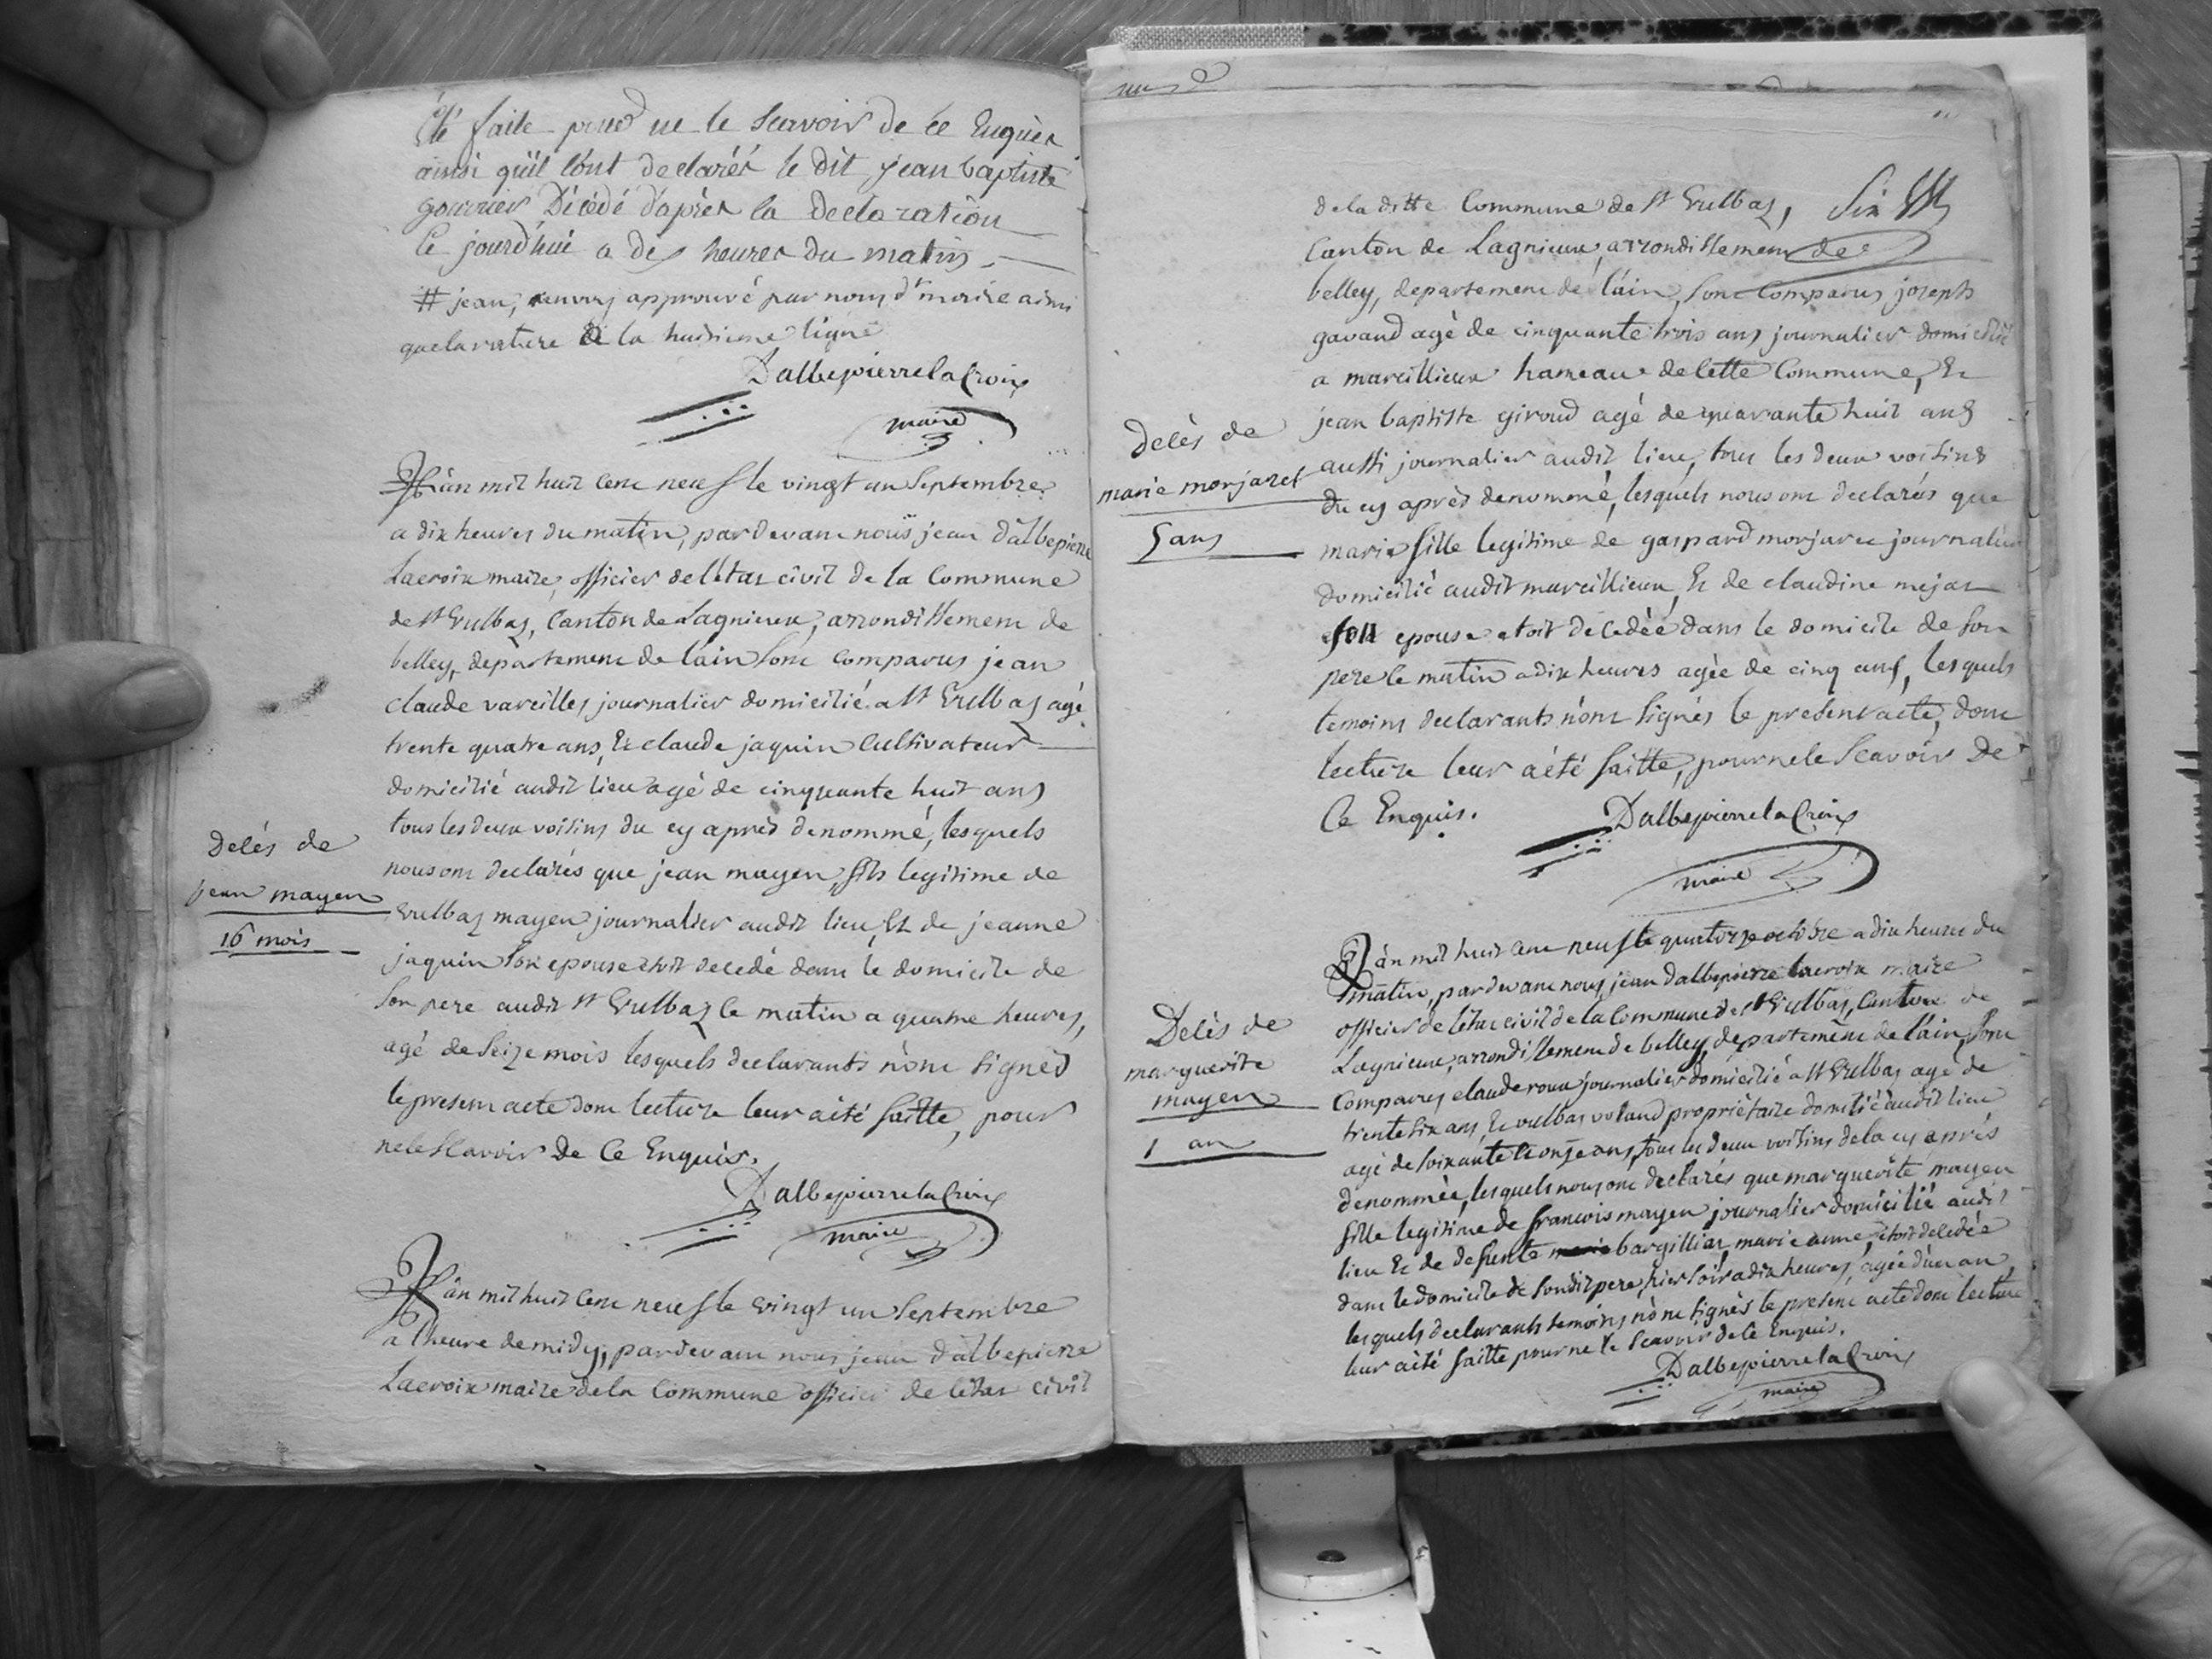 été faite pour ne le scavoir de ce Enquis
ainsi qu'il l'ont declarés le dit jean baptiste
gourrier Décédé d'après la declaration
Ce jourd'hui a dex heures du matin
# jean, renvoy approuvé par nous dt maire ainsi
que la rature de la huitieme ligne
Dalbepierre la Croix
maire
L'àn mil huit Cent neuf le vingt un Septembre
a dix heures du matin, pardevant nous jean d'albepierre
Lacroix maire, officier de l'état civil de la Commune
de St Vulbas, Canton de Lagnieux, arrondissement de
belley, département de l'ain sont Comparus jean
claude vareilles journalier domicilié a St Vulbas agé
trente quatre ans, Et claude jaquin Cultivateur
domicilié audit lieu agé de cinquante huit ans
tous les deux voisins du cy après denommé, lesquels
nous ont declarés que jean mayen, fils legitime de
Vulbas mayen journalier audit lieu, Et de jeanne
jaquin son epouse etoit decedé dans le domicile de
son pere audit St Vulbas ce matin a quatre heures,
agé de Seize mois lesquels declarants n'ont signés
le present acte dont lecture leur a été faitte, pour
ne le scavoir de Ce Enquis.
Dalbepierre la Croix
maire
Delés de
jean mayen
16 mois
L'àn mil huit Cent neuf le vingt un Septembre
a l'heure de midy, pardevant nous jean d'albepierre
Lacroix maire de la Commune officier de l'état civil
de la ditte Commune de St Vulbas, Six
Canton de Lagnieux, arrondissement de
belley, departement de l'ain, sont Comparus joseph
gavaud agé de cinquante trois ans journalier domicilié
a marcillieux hameau de Cette Commune, Et
jean baptiste giroud agé de quarante huit ans
aussi journalier audit lieu, tous les deux voisins
du cy après denommé, lesquels nous ont declarés que
marie fille legitime de gaspard monjaret journalier
domicilié audit marcillieux, Et de claudine mejat
son epouse etoit decedée dans le domicile de son
pere ce matin a dix heures agée de cinq ans, lesquels
temoins declarants n'ont signés le present acte, dont
lecture leur a été faitte, pour ne le Scavoir de
Ce Enquis.
Dalbepierre la Croix
maire
Delés de
marie monjaret
5 ans
L'àn mil huit Cent neuf le quatorze octobre a dix heures du
matin, pardevant nous jean dalbepierre lacroix maire
officier de l'état civil de la Commune de St Vulbas, Canton de
Lagnieux, arrondissement de belley, departement de l'ain, sont
Comparus claude roux journalier domicilié a St Vulbas agé de
trente six ans, Et vulbas voland propriétaire domilié audit lieu
agé de soixante et onze ans, tous les deux voisins de la cy après
denommée, lesquels nous ont declarés que marguerite mayen
fille legitime de francois mayen journalier domicilié audit
lieu Et de defunte marie bargilliat marie anne, etoit decedée
dans le domicile de son dit pere, hier soir a dix heures, agée d'un an,
lesquels declarants temoins n'ont signés le present acte dont lecture
leur a été faitte pour ne le scavoir de Ce Enquis.
Dalbepierre la Croix
maire
Delés de
marguerite
mayen
1 an